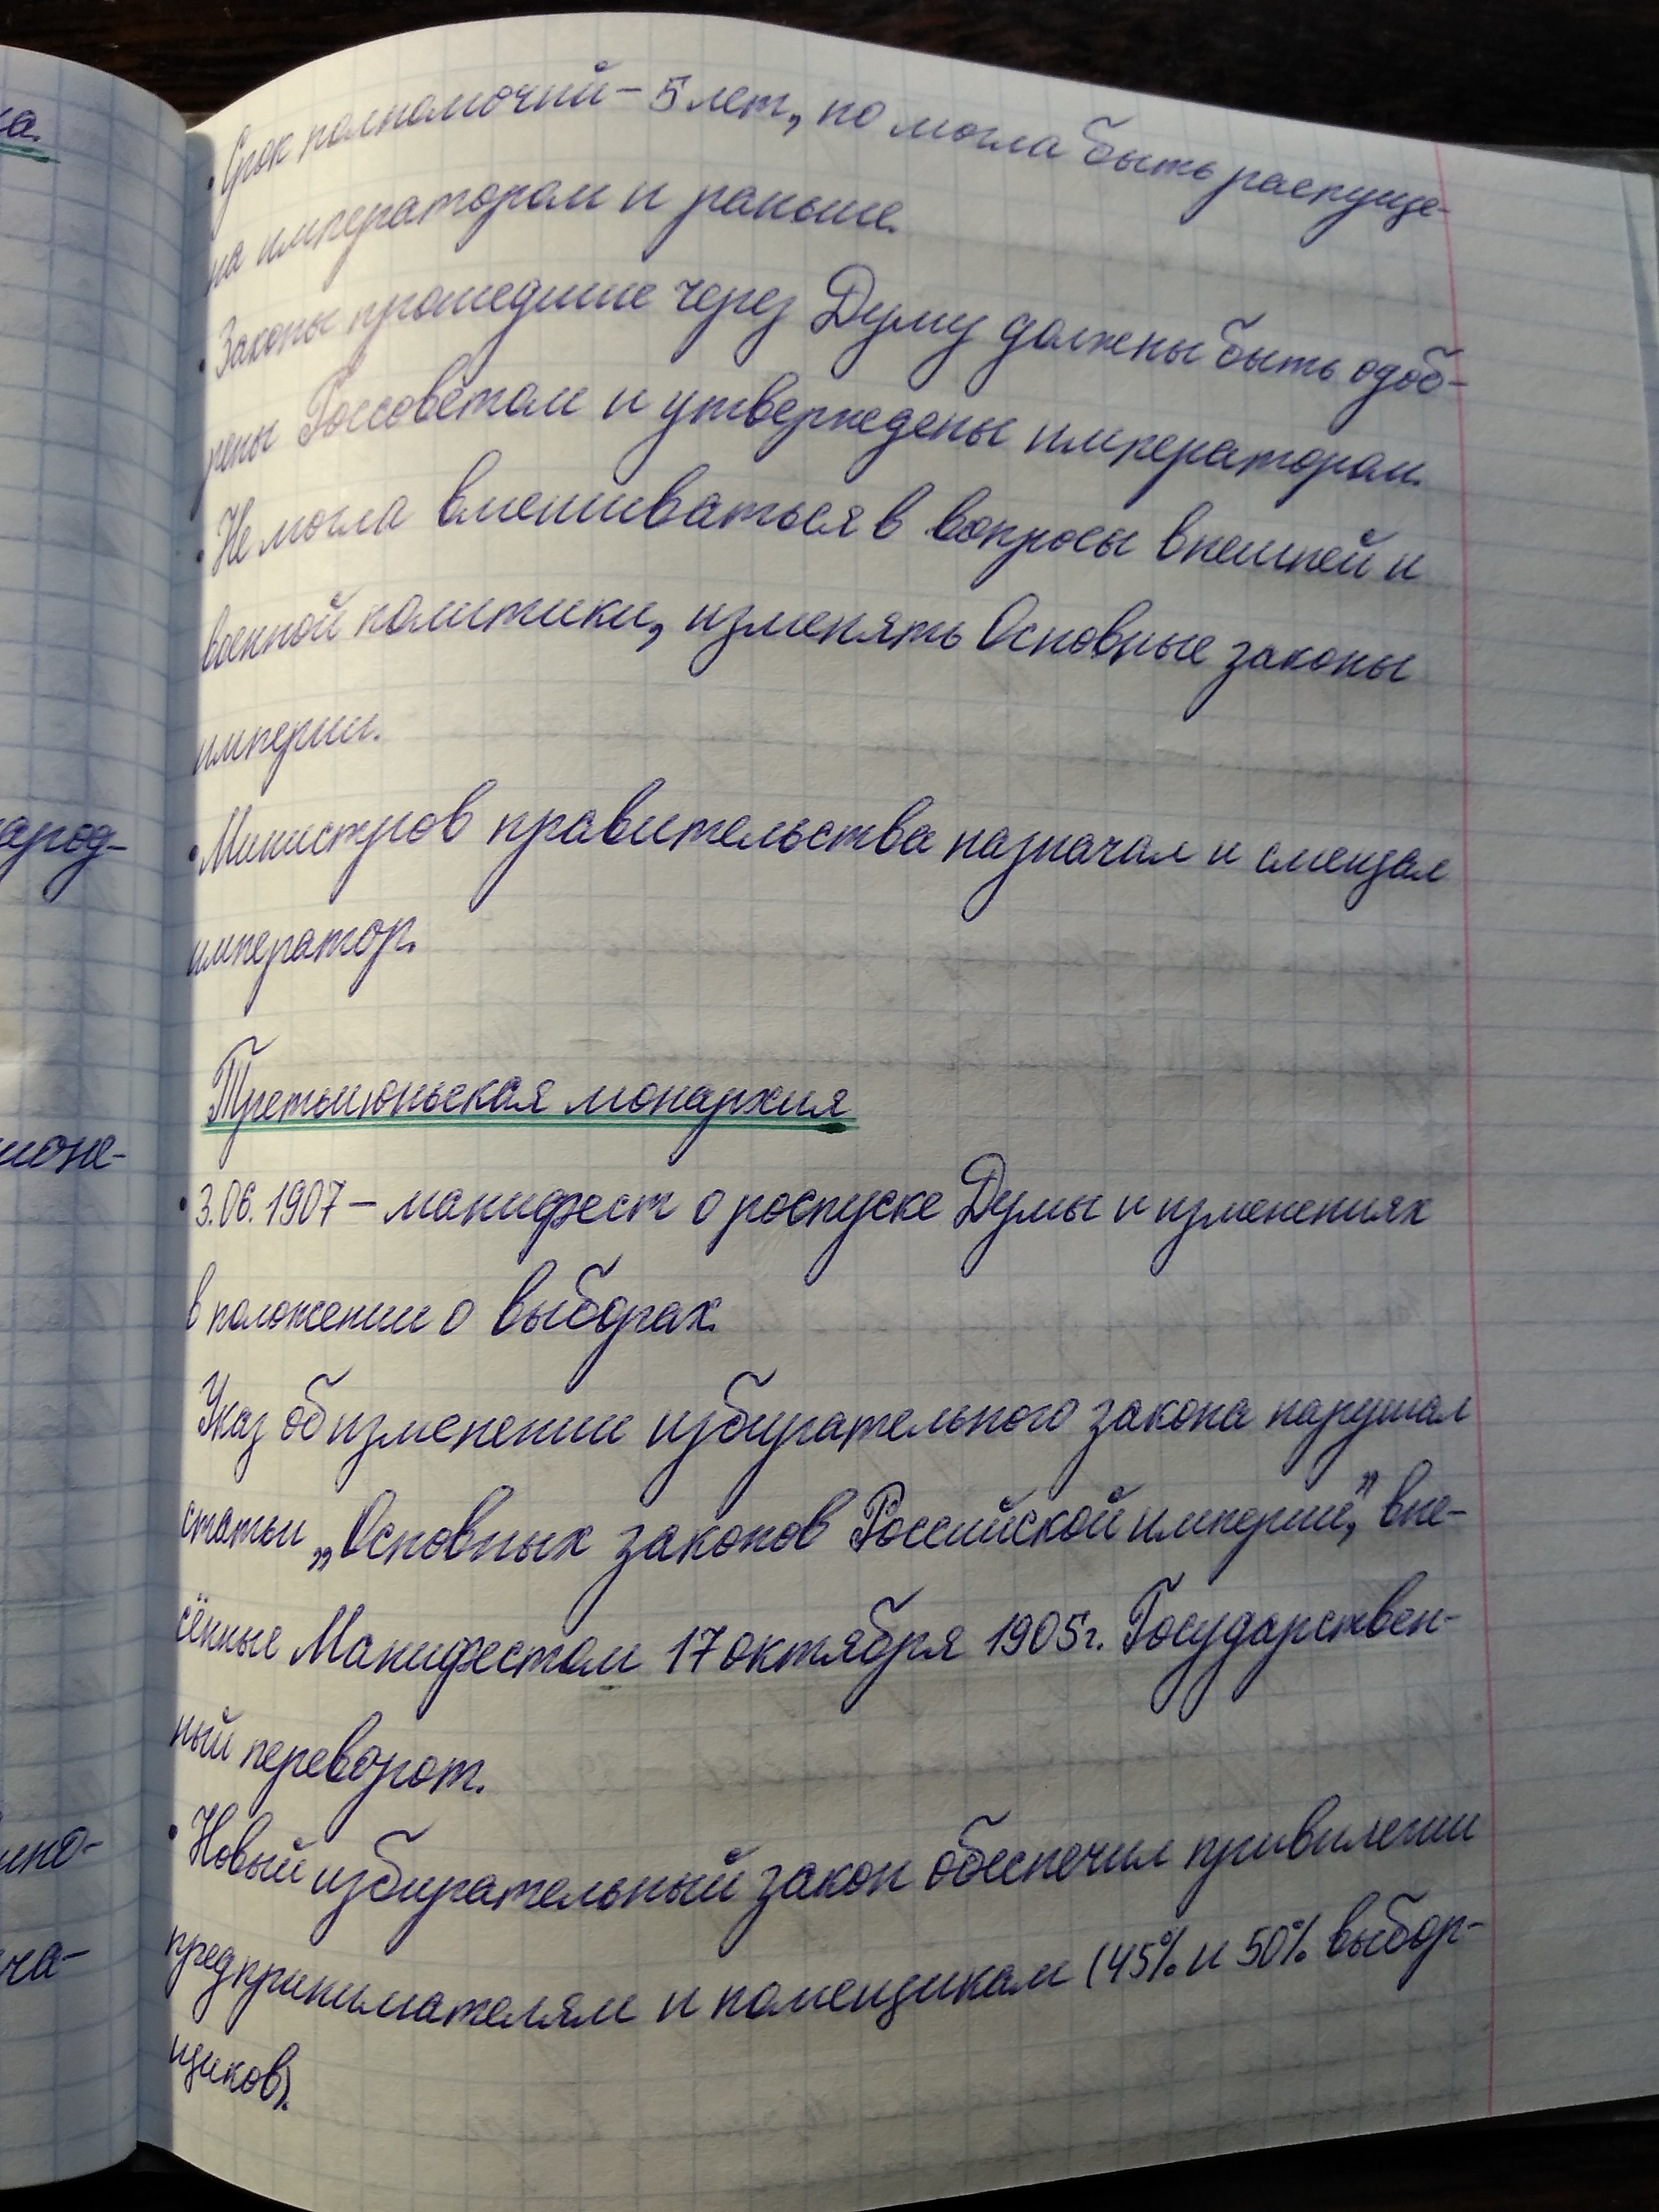 • Срок полномочий – 5 лет, но могла быть распуще-
на императором и раньше.
• Законы прошедшие через Думу должны быть одоб-
рены Госсоветом и утверждены императором.
• Не могла вмешиваться в вопросы внешней и
военной политики, изменять Основные законы
империи.
• Министров правительства назначал и смещал
император.
Третьиюньская монархия
• 3.06.1907 – манифест о роспуске Думы и изменениях
в положении о выборах.
Указ об изменении избирательного закона нарушал
статьи „Основных законов Российской империи”, вне-
сённые Манифестом 17 октября 1905г. Государствен-
ный переворот.
• Новый избирательный закон обеспечил привилегии
предпринимателям и помещикам (45% и 50% выбор-
щиков).